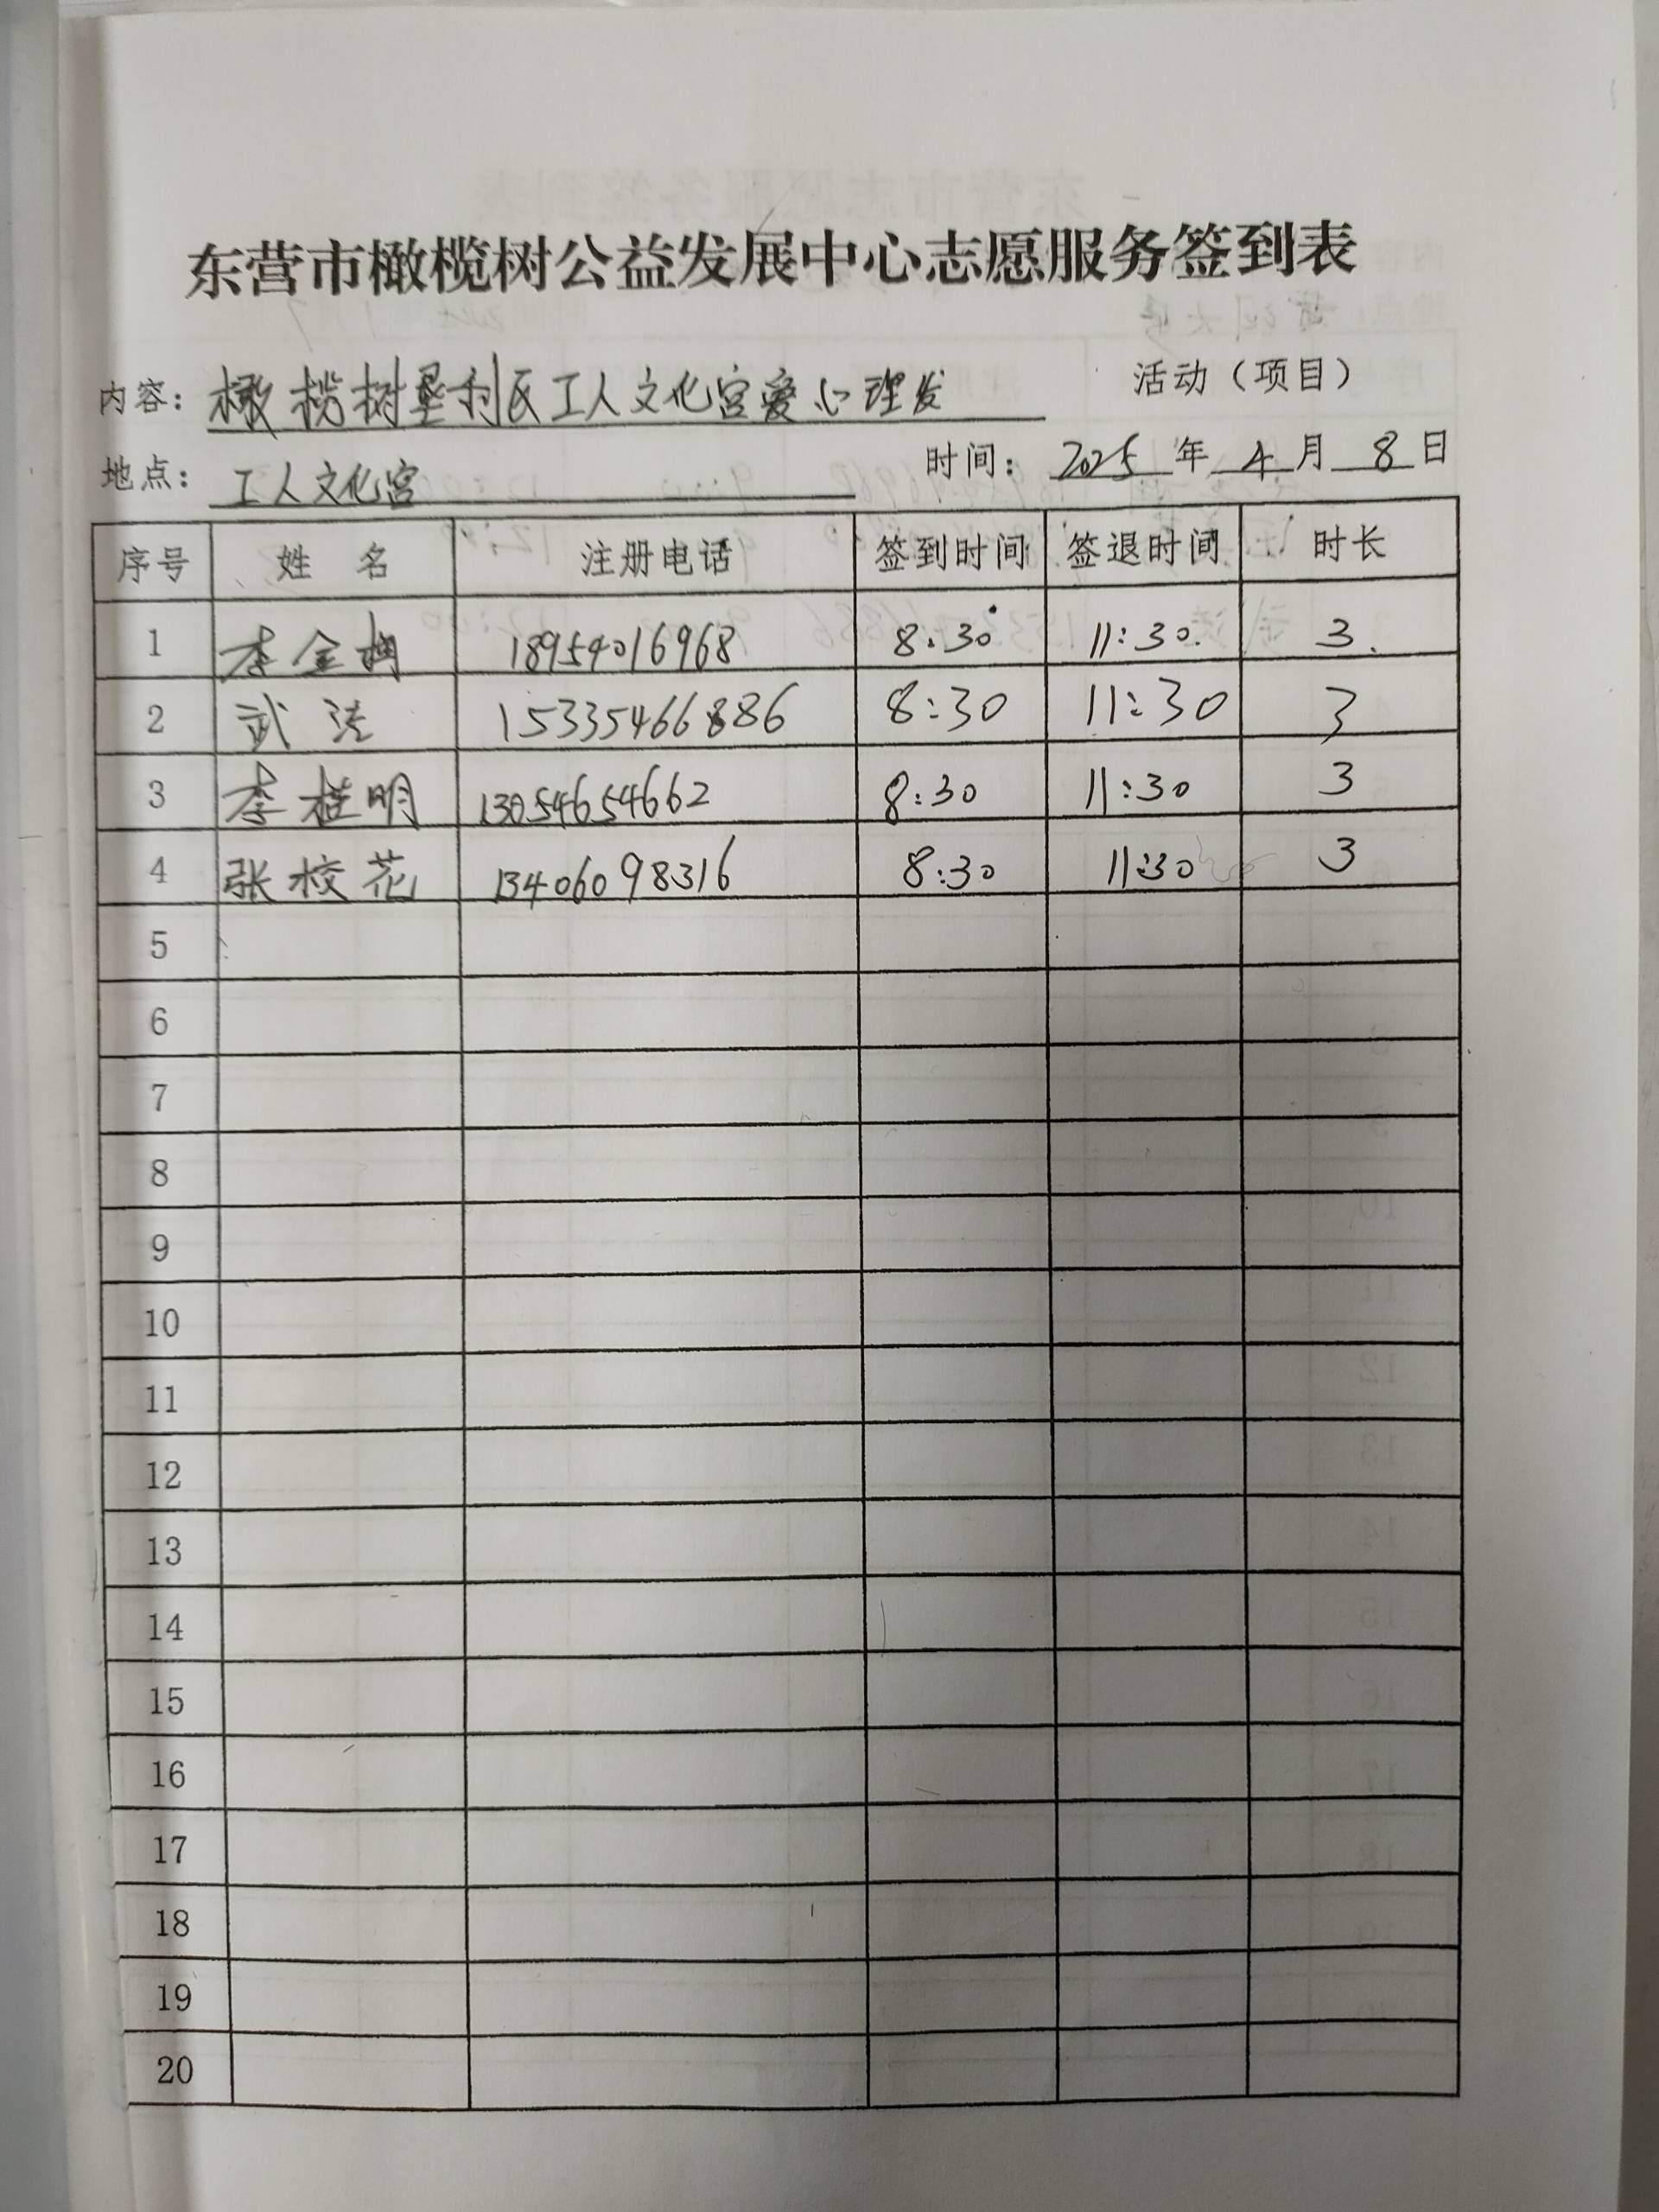 东营市橄榄树公益发展中心志愿服务签到表
内容：橄榄树垦利区工人文化宫爱心理发 活动（项目）
地点：工人文化宫 时间：2025年4月8日
序号 姓 名 注册电话 签到时间 签退时间 时长
1 李金梅 18954016968 8:30 11:30. 3.
2 武洁 15335466886 8:30 11:30 3
3 李桂明 13054654662 8:30 11:30 3
4 张校花 13406098316 8:30 11:30 3
5
6
7
8
9
10
11
12
13
14
15
16
17
18
19
20